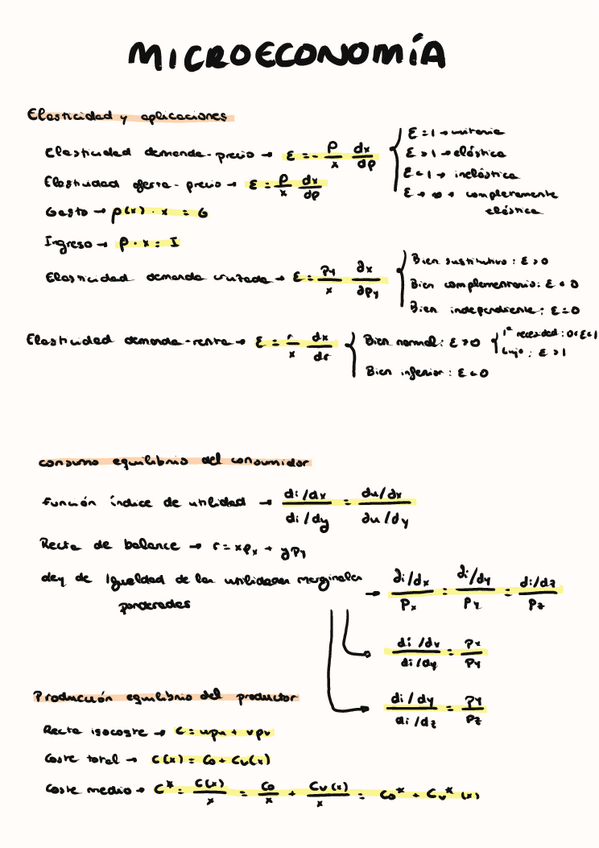 MICROECONOMÍA
Elasticidad y aplicaciones
Elasticidad demanda-precio → ε = - p/x dx/dp { ε = 1 → unitaria
ε > 1 → elástica
ε < 1 → inelástica
ε → ∞ → completamente elástica
Elasticidad oferta-precio → ε = p/x dx/dp
Gasto → p(x) · x = G
Ingreso → p · x = I
Elasticidad demanda cruzada → ε = py/x ∂x/∂py { Bien sustitutivo: ε > 0
Bien complementario: ε < 0
Bien independiente: ε = 0
Elasticidad demanda-renta → ε = r/x dx/dr { Bien normal: ε > 0 { 1ª necesidad: 0<ε<1
Lujo: ε > 1
Bien inferior: ε < 0
consumo equilibrio del consumidor
Función índice de utilidad → di/dx / di/dy = ∂u/∂x / ∂u/∂y
Recta de balance → r = xpx + ypy
Ley de Igualdad de las utilidades marginales → ∂i/dx / Px = ∂i/dy / Py = di/dz / Pz
ponderadas
di/dx / di/dy = Px / Py
di/dy / di/dz = Py / Pz
Producción equilibrio del productor
Recta isocoste → C = upu + vpv
Coste total → C(x) = Co + Cv(x)
Coste medio → C* = C(x)/x = Co/x + Cv(x)/x = Co* + Cv*(x)